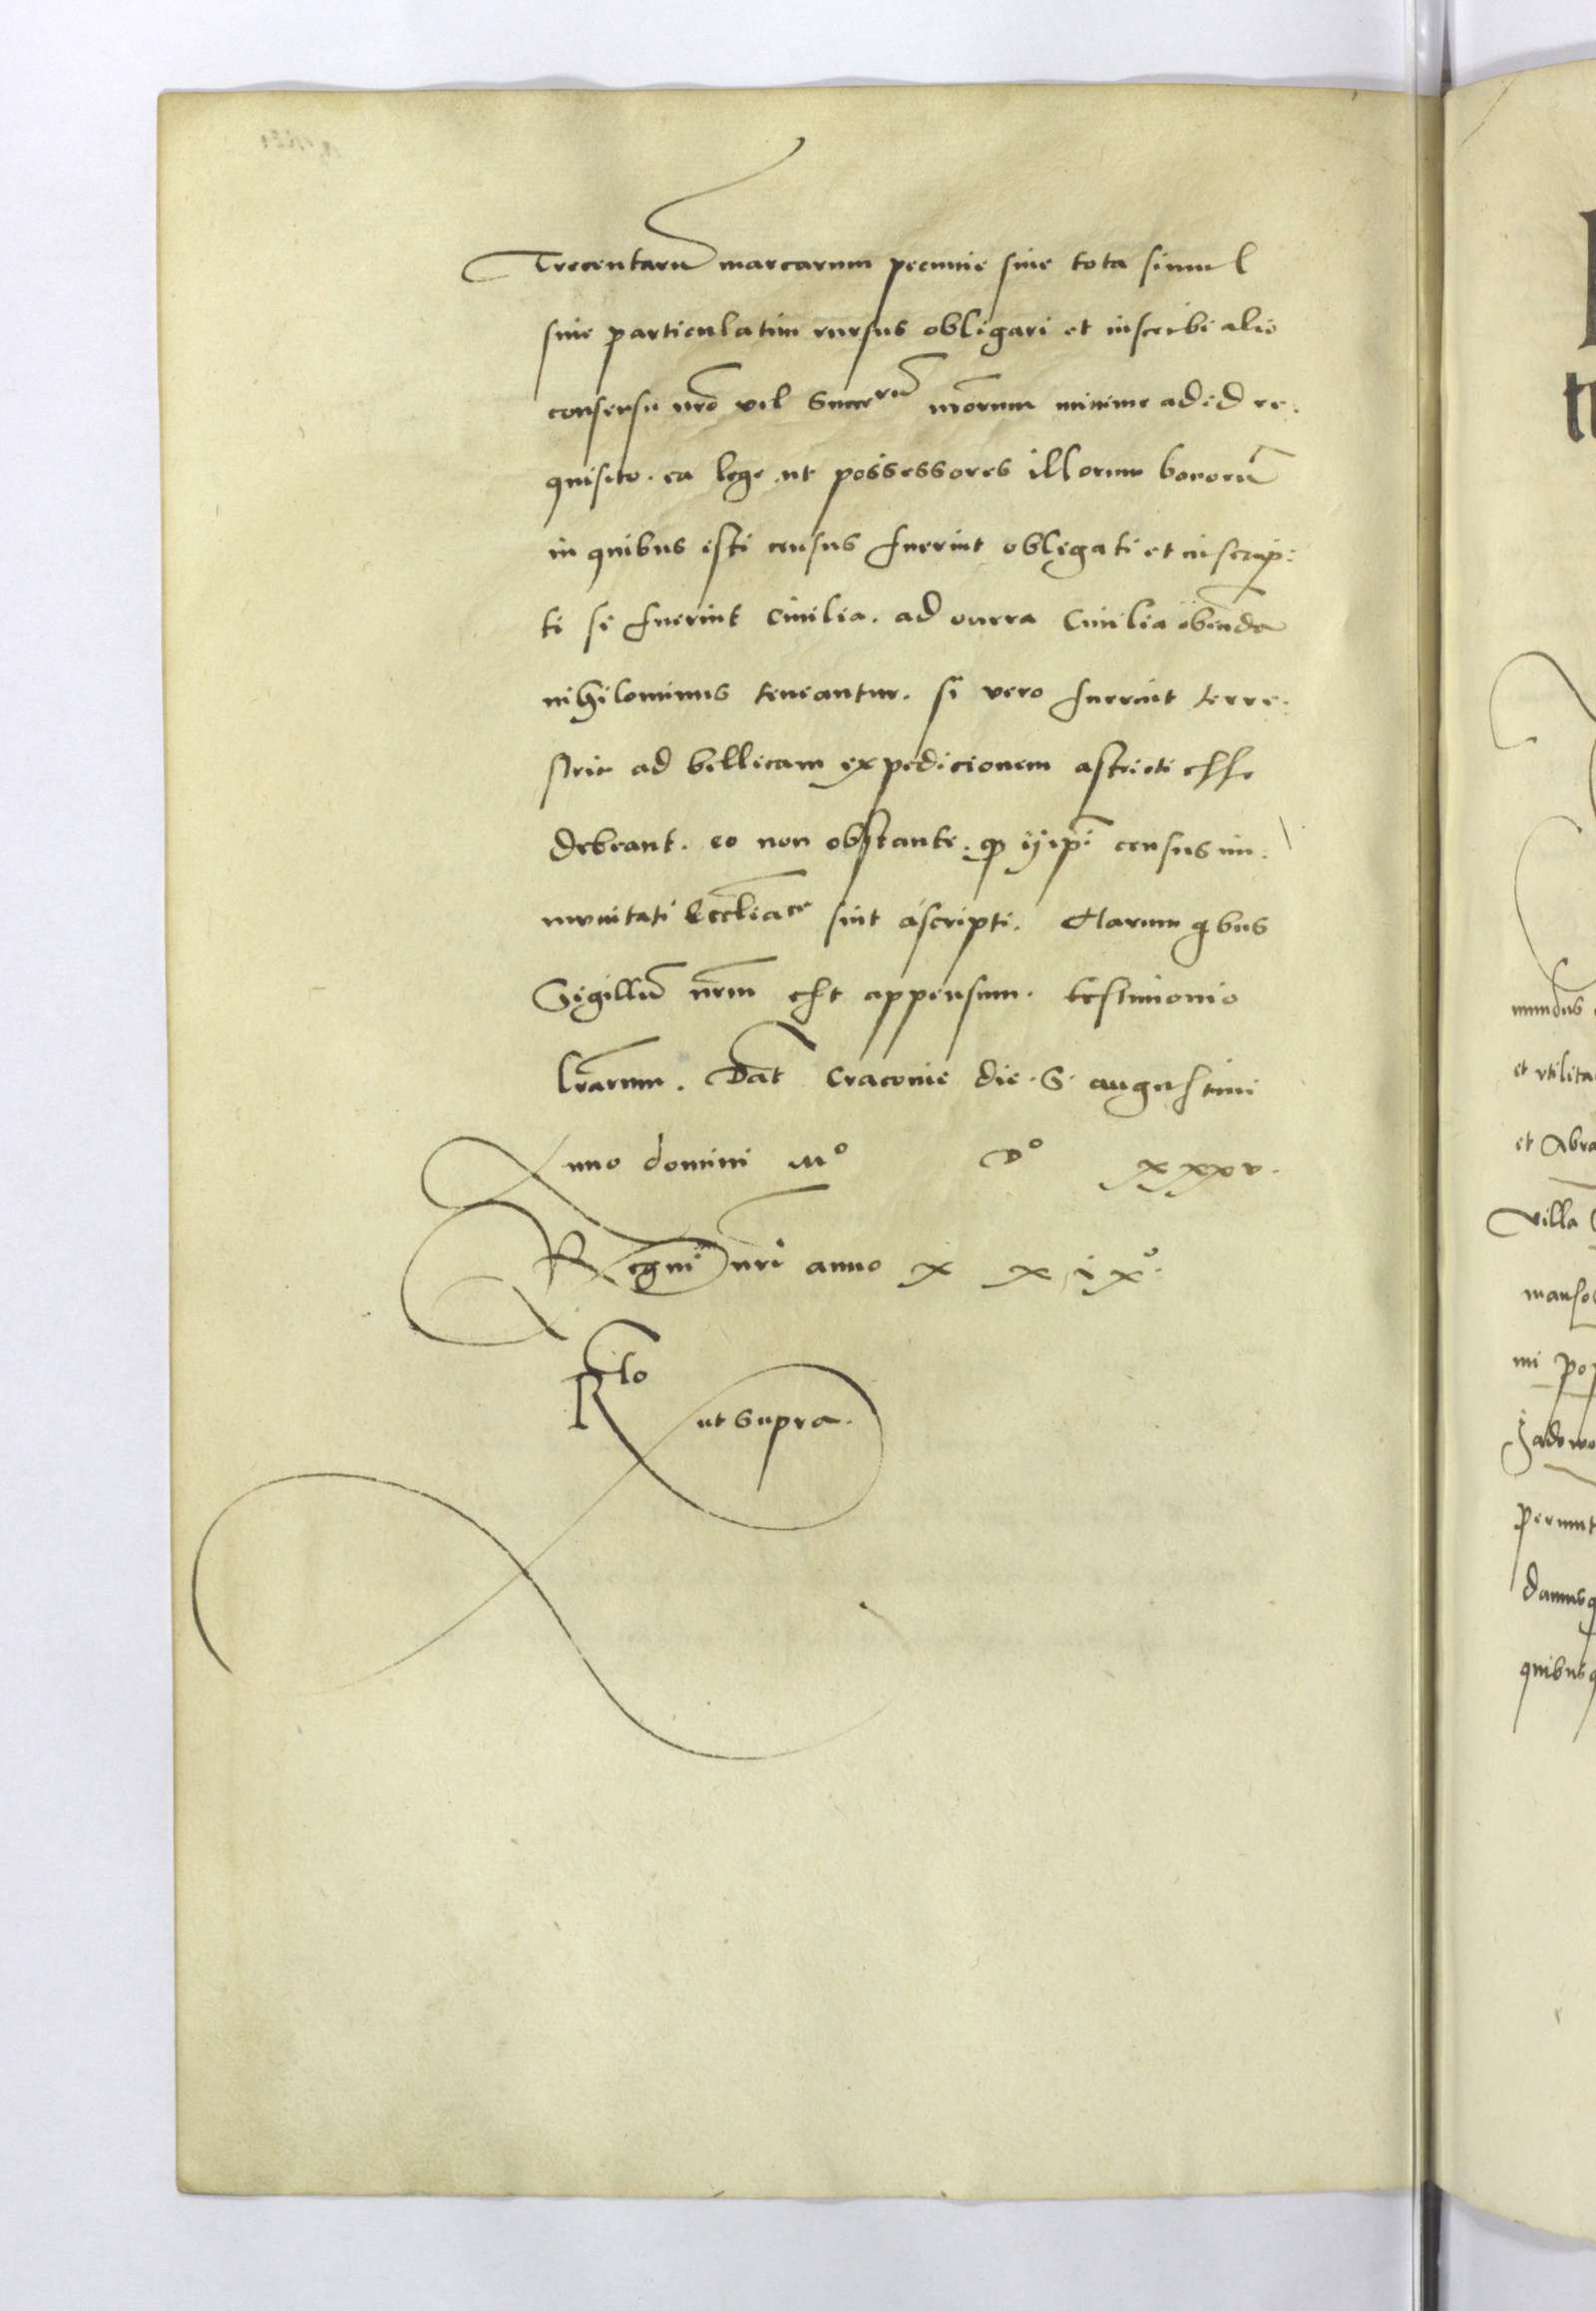 Trecentarũ marcarum pecunie siue tota simul
siue particulatim rursus obligari et inscribi alio
consensu nrõ vel Succrũ nrõrum minime ad id re.
quisito. ea lege ut possessores illorum bonorũ
in quibus isti census fuerint obligati et inscrip:
ti si fuerint Ciuilia. ad onera Ciuilia obeũda
nihilominus teneantur. si vero fuerint terre.
stria ad bellicam expedicionem astricti esse
debeant. eo non obstante. qp ijipĩ census im.
munitati Eccliãce sint ascripti. Harum qbus
Sigillũ nrm̃ est appensum. testimonio
lrãrum. Dat̃ Cracouie die. S. augustini
Anno domini Mo Do xxxv.
Regni nri anno x x i xo.
Rlo
ut supra.
mundus
et vtilita
et Abra
villa
manso
ni pop
Jadwo
permit
damusq
quibusq